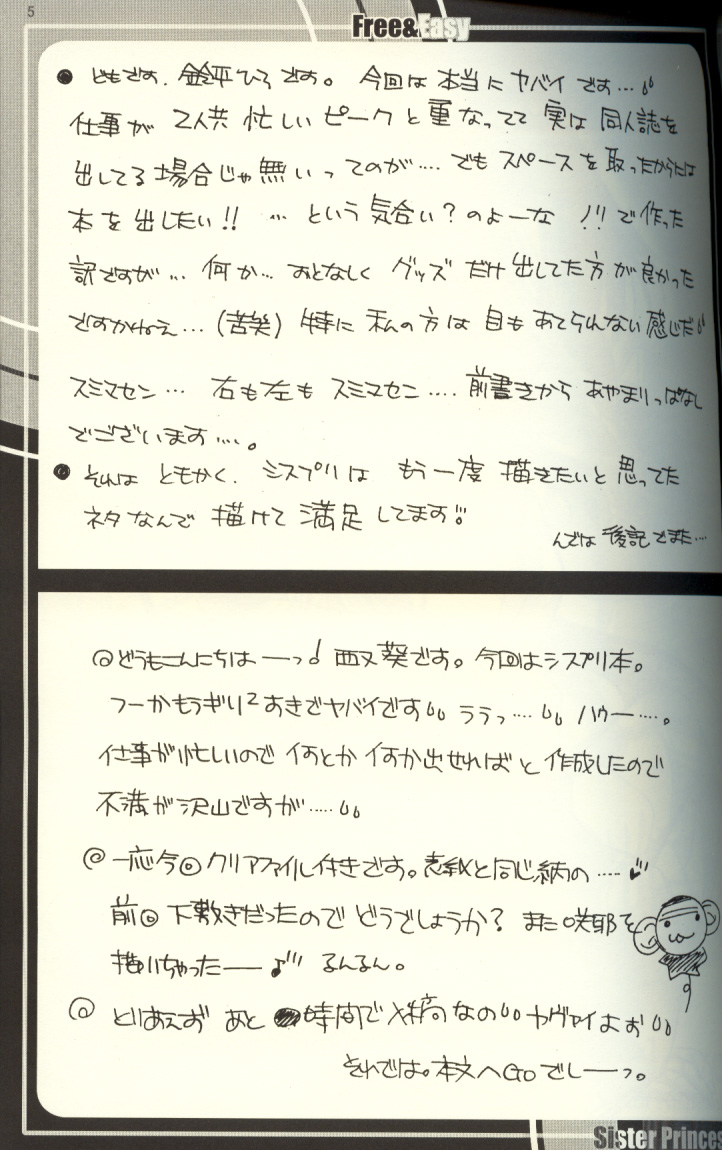 5
Free&Easy
● ども です. 鈴平ひろ です。 今回は 本当に ヤバイ です…
仕事が 2人共 忙しい ピークと 重なってて 実は 同人誌を
出してる 場合じゃ 無いってのが…. でも スペースを 取ったからには
本を 出したい!! … という 気合い? のよーな ノリ で 作った
訳ですが… 何か… おとなしく グッズ だけ 出してた方が 良かった
ですかねぇ… (苦笑) 特に 私の方は 目も あてられない 感じだ
スミマセン… 右も左も スミマセン…. 前書きから あやまりっぱなし
でございます…。
● それは ともかく. シスプリは もう一度 描きたいと 思ってた
ネタ なんで 描けて 満足 してます!!
んでは 後記でまた…
@どうもこんにちは—っ♪ 西又葵です。今回はシスプリ本。
フーかもうギリ2あきでヤバイです ううっ…. ハウー….。
仕事が忙しいので 何とか 何か出せればと 作成したので
不満が沢山ですが…..
@ 一応今回 クリアファイル付きです。表紙と同じ柄の ….
前回 下敷きだったので どうでしょうか? また 咲耶を
描いちゃった—♪ るんるん。
@ とりあえず あと 時間で 入稿なの ヤヴァイよぉ
それでは。本文へGoでし—っ。
Sister Princes